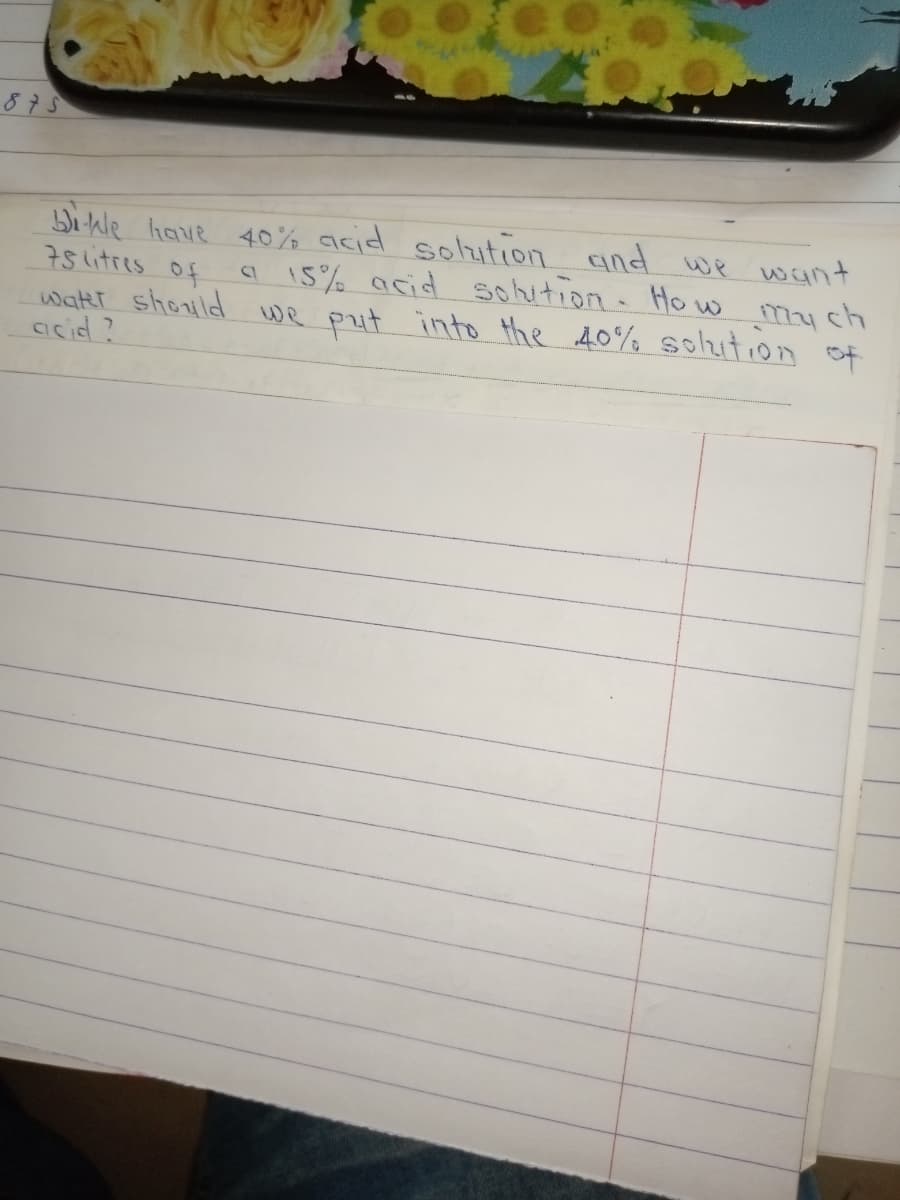 875
b). We have 40% acid solution and we want
75 litres of a 15% acid solution. How much
water should we put into the 40% solution of
acid?